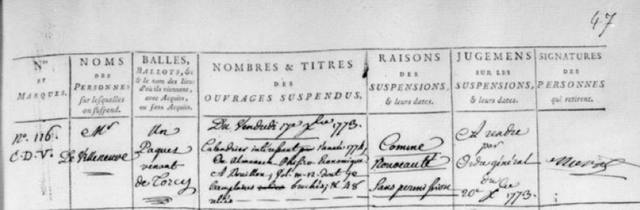 47
Nos. ET MARQUES.
NOMS DES PERSONNES sur lesquelles on suspend.
BALLES, BALLOTS, &c & le nom des lieux d'où ils viennent, avec Acquits, ou sans Acquits.
NOMBRES & TITRES DES OUVRAGES SUSPENDUS,
RAISONS DES SUSPENSIONS, & leurs dates.
JUGEMENS SUR LES SUSPENSIONS, & leurs dates.
SIGNATURES DES PERSONNES qui retirent.
No. 116.
C.D.V.
Mr
De Villeneuve
Un
Paquet
venant
de Torcy
Du Vendredi 17e Xbre 1773.
Calendrier intéressant pour l'année 1774,
Ou Almanach Physico Economique
A Bouillon,
Comme
Nouveauté
Sans permission
A rendre
par
Ordre général
du
20e Xbre 1773.